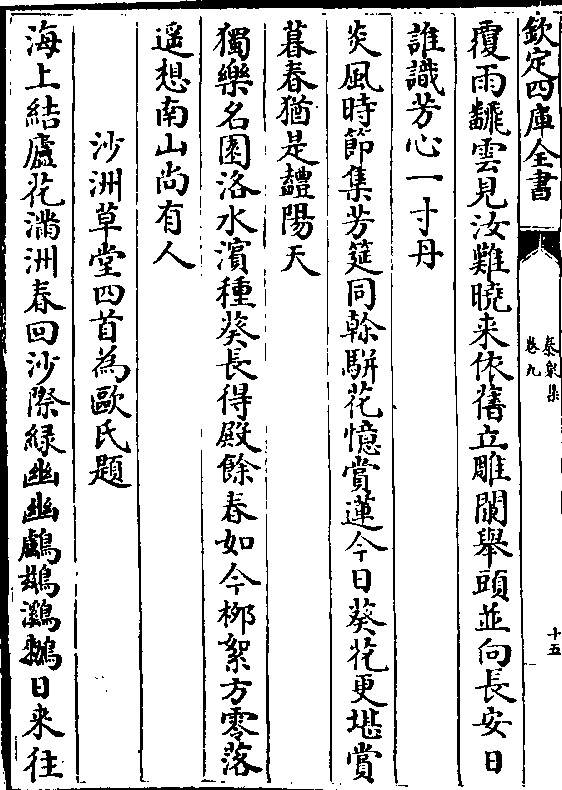 欽定四庫全書
泰泉集
卷九
十五
覆雨飜雲見汝難曉来依舊立雕闌舉頭並向長安日
誰識芳心一寸丹
炎風時節集芳筵同榦駢花憶賞蓮今日葵花更堪賞
暮春猶是豔陽天
獨樂名園洛水濵種葵長得殿餘春如今栁絮方零落
遥想南山尚有人
沙洲草堂四首為歐氏題
海上結廬花滿洲春回沙際緑幽幽鸕鷀鸂鶒日来往